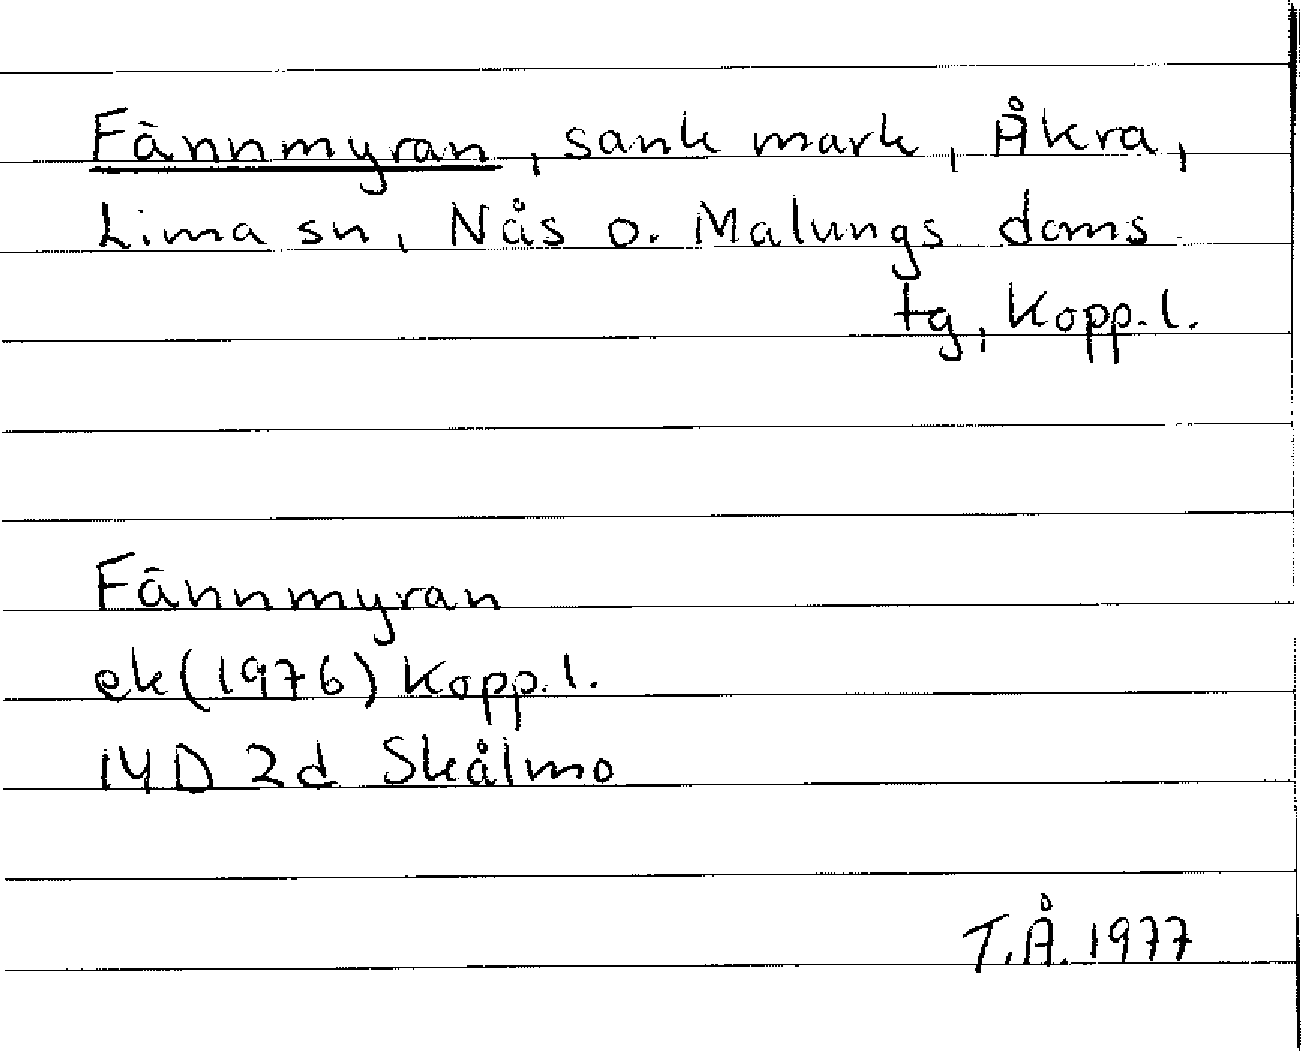 Fännmyran, sank mark, Åkra,
Lima sn, Nås o. Malungs doms
tg, Kopp. l.
Fännmyran
ek (1976) Kopp. l.
14D 2d Skålmo
T.Å. 1977